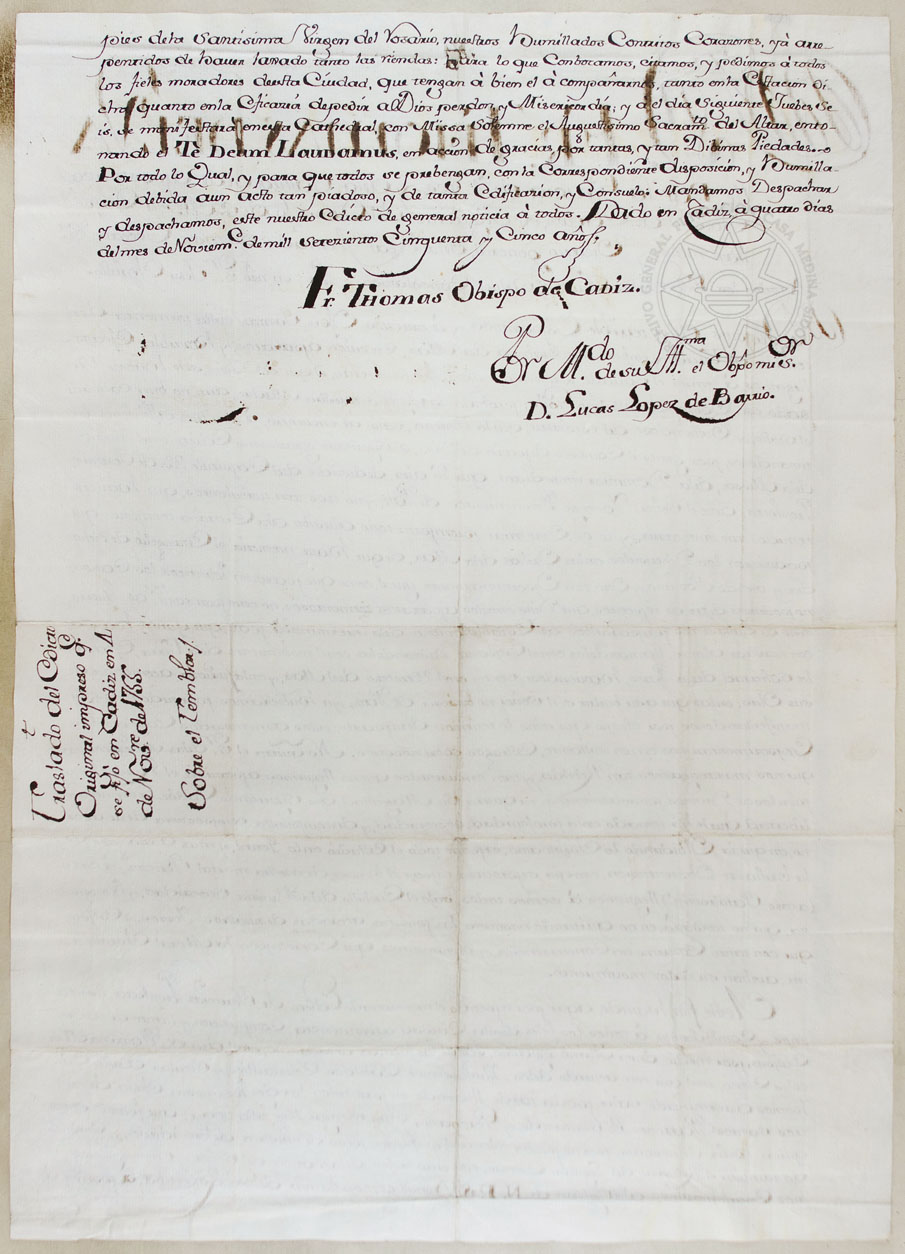 pies de la Santissima Virgen del Rosario, nuestros Humillados Contritos Corazones, yà arre-
pentidos de haver laxado tanto las riendas: Para lo que Combocamos, citamos, y pedimos à todos
los fieles moradores de esta Ciudad, que tengan à bien el à compañarnos, tanto en la Estacion di-
cha, quanto en la Eficazia de pedir a Dios perdon, y Misericordia; y à el dia Siguiente Juebes Se-
is, se manifestarà en esta Cathedral, con Missa Solemne el Augustisimo Sacram.to del Altar, ento-
nando el Te Deum Laudamus, en accion de gracias, por tantas, y tan Divinas Piedades.
Por todo lo Qual, y para que todos se prebengan, con la Correspondiente disposicion, y Humilla
cion debida a un acto tan piadoso, y de tanta Edificacion, y Consuelo: Mandamos Despachar
y despachamos, este nuestro Edicto de general noticia à todos. Dado en Cadiz, à quatro dias
del mes de Noviem.e de mill Setezientos Cinquenta y Cinco años.
Fr. Thomas Obispo de Cadiz.
Por M.do de su Ill.ma el Obpo mi S.or
D. Lucas Lopez de Barrio.
Traslado del Edicto
Original impreso q.e
se fijó en Cadiz en 4
de Nov.re de 1755.
Sobre el Temblor.